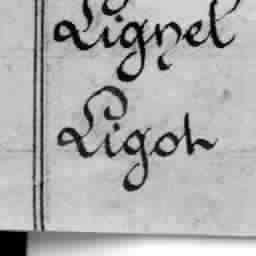 Lignel
Ligoh